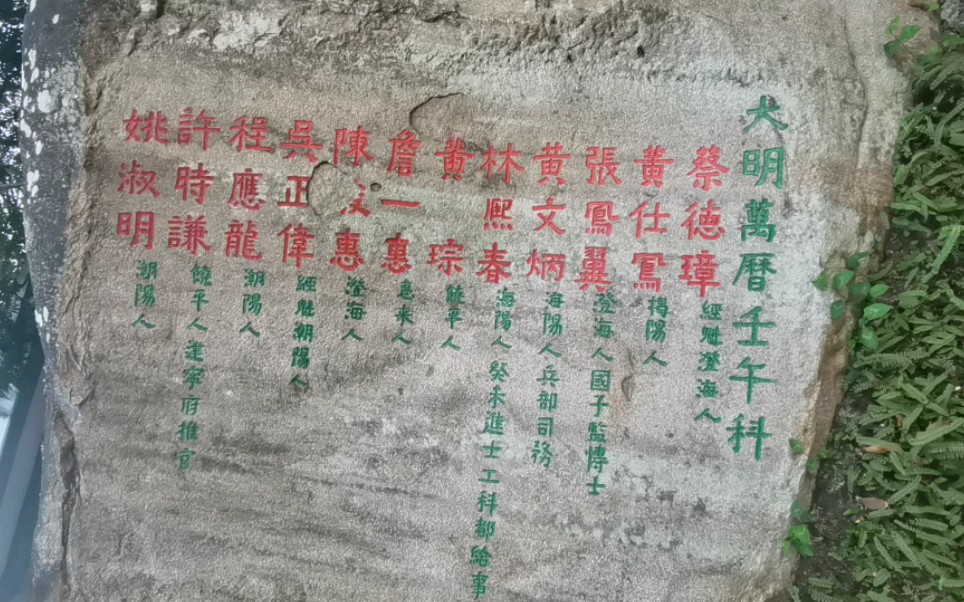 大明萬曆壬午科
蔡德璋 經魁澄海人
黃仕鳳 揭陽人
張鳳翼 澄海人國子監博士
黄文炳 海陽人兵部司務
林熙春 海陽人癸未進士工科都給事
黄宗 饒平人
詹一惠 惠來人
陳 惠 澄海人
吳正偉 經魁潮陽人
程應龍 潮陽人
許時謙 饒平人建寧府推官
姚淑明 潮陽人